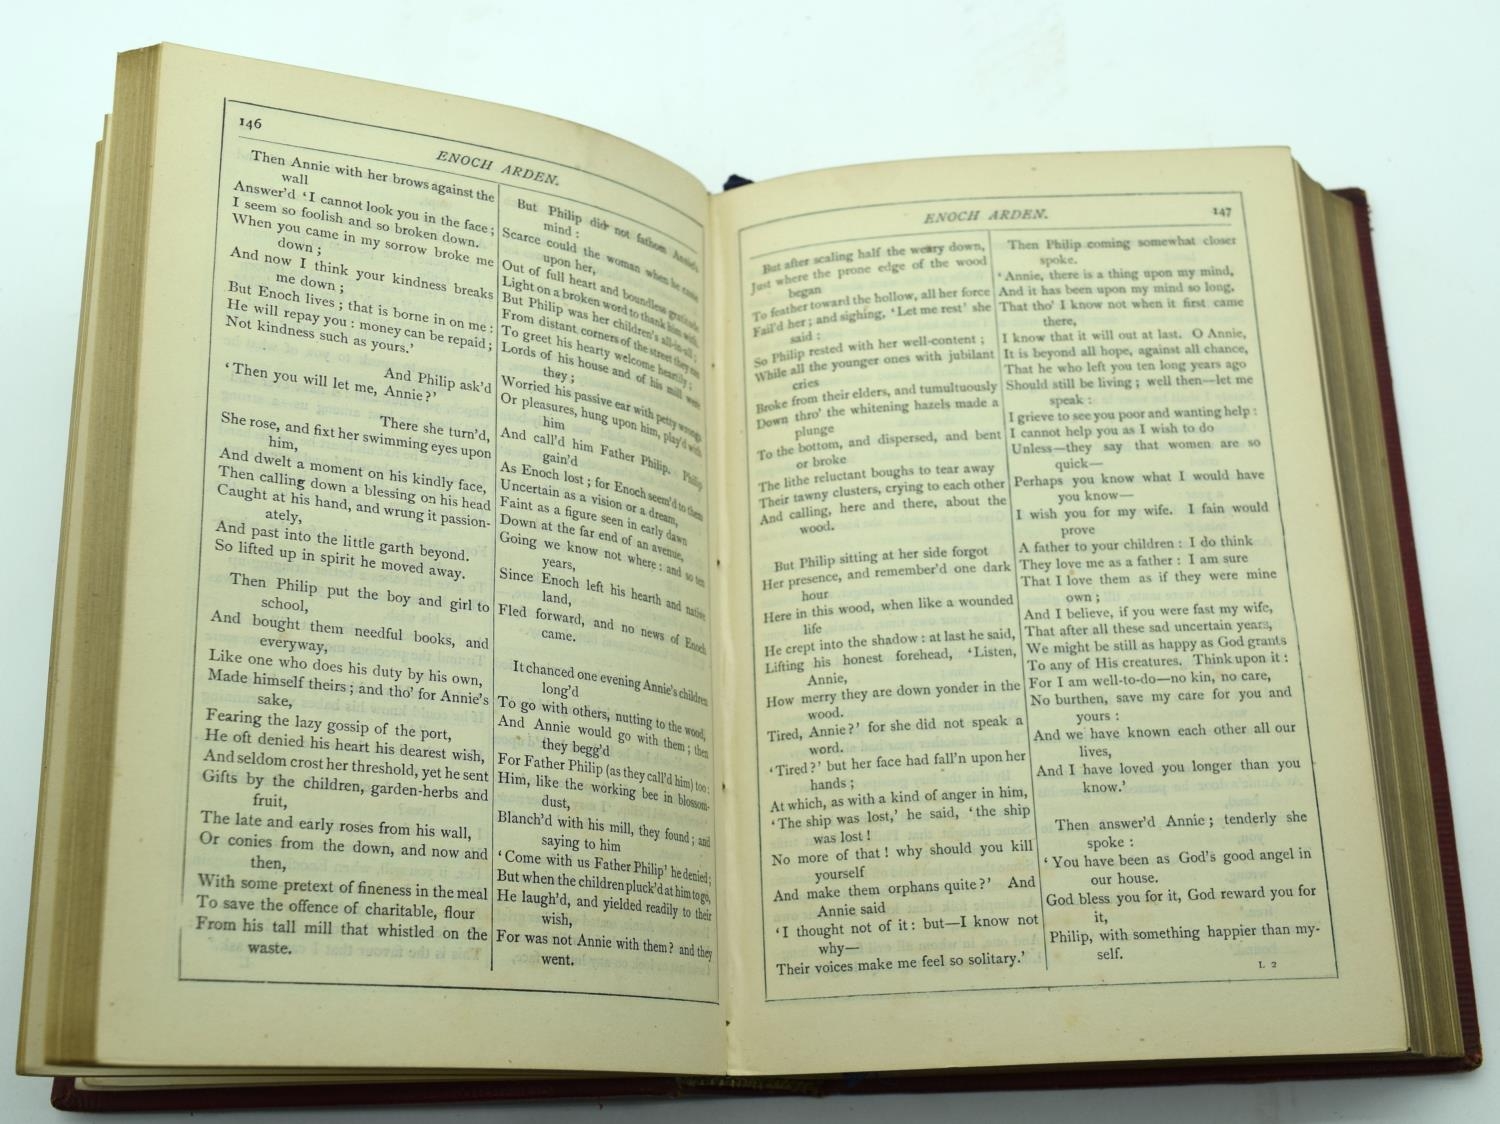 146
ENOCH ARDEN.
Then Annie with her brows against the
wall
Answer'd ‘I cannot look you in the face;
I seem so foolish and so broken down.
When you came in my sorrow broke me
down;
And now I think your kindness breaks
me down;
But Enoch lives; that is borne in on me:
He will repay you: money can be repaid;
Not kindness such as yours.’
And Philip ask'd
‘Then you will let me, Annie?’
There she turn'd,
She rose, and fixt her swimming eyes upon
him,
And dwelt a moment on his kindly face,
Then calling down a blessing on his head
Caught at his hand, and wrung it passion-
ately,
And past into the little garth beyond.
So lifted up in spirit he moved away.
Then Philip put the boy and girl to
school,
And bought them needful books, and
everyway,
Like one who does his duty by his own,
Made himself theirs; and tho' for Annie's
sake,
Fearing the lazy gossip of the port,
He oft denied his heart his dearest wish,
And seldom crost her threshold, yet he sent
Gifts by the children, garden-herbs and
fruit,
The late and early roses from his wall,
Or conies from the down, and now and
then,
With some pretext of fineness in the meal
To save the offence of charitable, flour
From his tall mill that whistled on the
waste.
But Philip did not fathom Annie's
mind:
Scarce could the woman when he came
upon her,
Out of full heart and boundless gratitude
Light on a broken word to thank him with.
But Philip was her children's all-in-all;
From distant corners of the street they ran
To greet his hearty welcome heartily;
Lords of his house and of his mill were
they;
Worried his passive ear with petty wrongs
Or pleasures, hung upon him, play'd with
him
And call'd him Father Philip. Philip
gain'd
As Enoch lost; for Enoch seem'd to them
Uncertain as a vision or a dream,
Faint as a figure seen in early dawn
Down at the far end of an avenue,
Going we know not where: and so ten
years,
Since Enoch left his hearth and native
land,
Fled forward, and no news of Enoch
came.
It chanced one evening Annie's children
long'd
To go with others, nutting to the wood,
And Annie would go with them; then
they begg'd
For Father Philip (as they call'd him) too:
Him, like the working bee in blossom-
dust,
Blanch'd with his mill, they found; and
saying to him
‘Come with us Father Philip’ he denied;
But when the children pluck'd at him to go,
He laugh'd, and yielded readily to their
wish,
For was not Annie with them? and they
went.
ENOCH ARDEN.
147
But after scaling half the weary down,
Just where the prone edge of the wood
began
To feather toward the hollow, all her force
Fail'd her; and sighing, ‘Let me rest’ she
said:
So Philip rested with her well-content;
While all the younger ones with jubilant
cries
Broke from their elders, and tumultuously
Down thro' the whitening hazels made a
plunge
To the bottom, and dispersed, and bent
or broke
The lithe reluctant boughs to tear away
Their tawny clusters, crying to each other
And calling, here and there, about the
wood.
But Philip sitting at her side forgot
Her presence, and remember'd one dark
hour
Here in this wood, when like a wounded
life
He crept into the shadow: at last he said,
Lifting his honest forehead, ‘Listen,
Annie,
How merry they are down yonder in the
wood.
Tired, Annie?’ for she did not speak a
word.
‘Tired?’ but her face had fall'n upon her
hands;
At which, as with a kind of anger in him,
‘The ship was lost,’ he said, ‘the ship
was lost!
No more of that! why should you kill
yourself
And make them orphans quite?’ And
Annie said
‘I thought not of it: but—I know not
why—
Their voices make me feel so solitary.’
Then Philip coming somewhat closer
spoke.
‘Annie, there is a thing upon my mind,
And it has been upon my mind so long,
That tho' I know not when it first came
there,
I know that it will out at last. O Annie,
It is beyond all hope, against all chance,
That he who left you ten long years ago
Should still be living; well then—let me
speak:
I grieve to see you poor and wanting help:
I cannot help you as I wish to do
Unless—they say that women are so
quick—
Perhaps you know what I would have
you know—
I wish you for my wife. I fain would
prove
A father to your children: I do think
They love me as a father: I am sure
That I love them as if they were mine
own;
And I believe, if you were fast my wife,
That after all these sad uncertain years,
We might be still as happy as God grants
To any of His creatures. Think upon it:
For I am well-to-do—no kin, no care,
No burthen, save my care for you and
yours:
And we have known each other all our
lives,
And I have loved you longer than you
know.’
Then answer'd Annie; tenderly she
spoke:
‘You have been as God's good angel in
our house.
God bless you for it, God reward you for
it,
Philip, with something happier than my-
self.
L 2